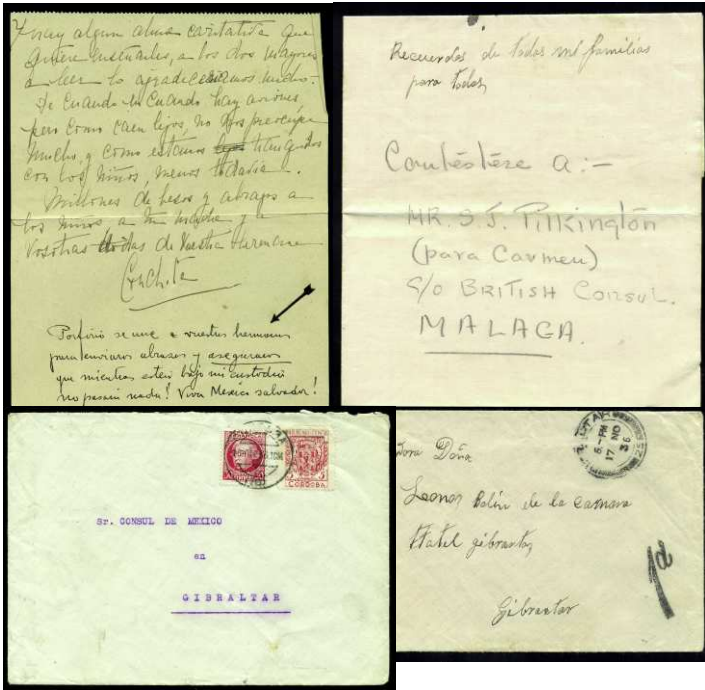 Y hay algun alma caritativa que
quiere enseñarles, a los dos mayores
a leer lo agradeceriamos mucho.
De cuando en cuando hay aviones
pero como caen lejos, no nos preocupan
mucho, y como estamos tranquilos
con los niños, menos todavia.
Millones de besos y abrazos a
los niños a mi madre y a
vosotras todas de vuestra hermana
Conchita
Porfirio se une a vuestra hermana
para enviaros abrazos y aseguraros
que mientras esten bajo mi custodia
no pasará nada! Viva Mexico salvador!
Recuerdos de todas mil familias
para todas,
Contéstéze a:-
MR. S. J. PILKINGTON
(para Carmen)
c/o BRITISH CONSUL.
MALAGA.
CORDOBA
Sr. CONSUL DE MEXICO
en
GIBRALTAR
5-PM
17 NO
36
Doña
Leonor de la camara
Hotel gibraltar
Gibraltar